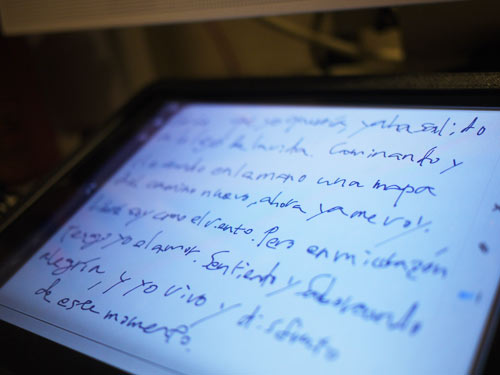 que yo quería, ya ha salido
de la vida. Caminando y
en la mano una mapa
camino nuevo, ahora ya me voy.
soy como el viento. Pero en mi corazón
Tengo yo el amor. Sentiendo y saboreando
alegría, y yo vivo y disfruto
de este momento.